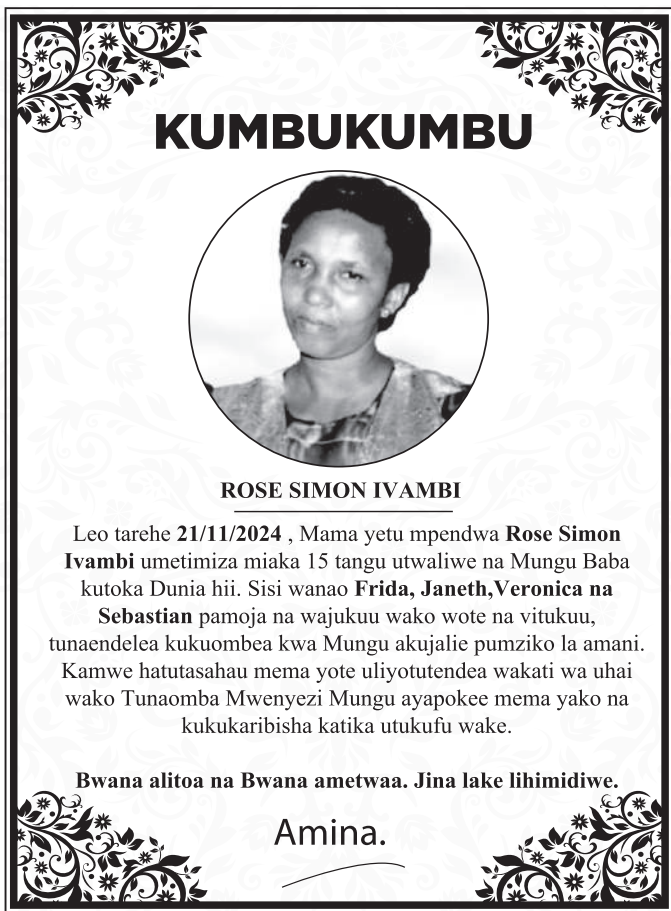 KUMBUKUMBU
ROSE SIMON IVAMBI
Leo tarehe 21/11/2024 , Mama yetu mpendwa Rose Simon
Ivambi umetimiza miaka 15 tangu utwaliwe na Mungu Baba
kutoka Dunia hii. Sisi wanao Frida, Janeth,Veronica na
Sebastian pamoja na wajukuu wako wote na vitukuu,
tunaendelea kukuombea kwa Mungu akujalie pumziko la amani.
Kamwe hatutasahau mema yote uliyotutendea wakati wa uhai
wako Tunaomba Mwenyezi Mungu ayapokee mema yako na
kukukaribisha katika utukufu wake.
Bwana alitoa na Bwana ametwaa. Jina lake lihimidiwe.
Amina.